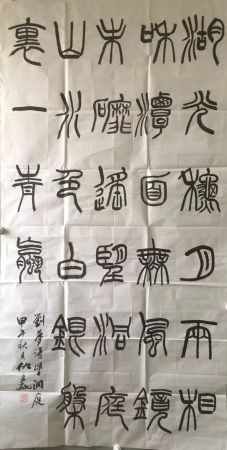 湖光秋月兩相
和潭面無風鏡
未磨遙望洞庭
山水色白銀盤
裏一青螺
劉禹錫望洞庭
甲午秋月